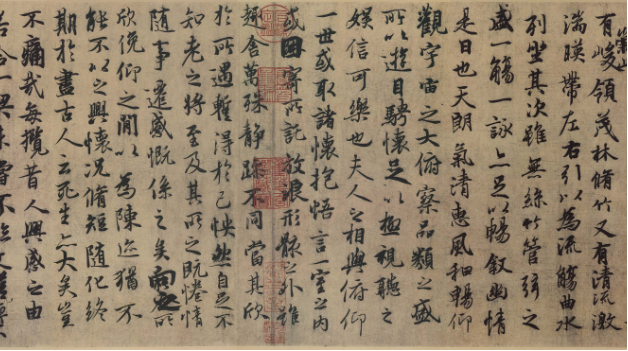 崇山
有峻領茂林脩竹又有清流激
湍暎帶左右引以為流觴曲水
列坐其次雖無絲竹管弦之
盛一觴一詠亦足以暢敘幽情
是日也天朗氣清惠風和暢仰
觀宇宙之大俯察品類之盛
所以遊目騁懷足以極視聽之
娛信可樂也夫人之相與俯仰
一世或取諸懷抱悟言一室之內
或因寄所託放浪形骸之外雖
趣舍萬殊靜躁不同當其欣
於所遇暫得於己怏然自足不
知老之將至及其所之既惓情
隨事遷感慨係之矣向之所
欣俛仰之間以為陳迹猶不
能不以之興懷況脩短隨化終
期於盡古人云死生亦大矣豈
不痛哉每攬昔人興感之由
若合一契未嘗不臨文嗟悼